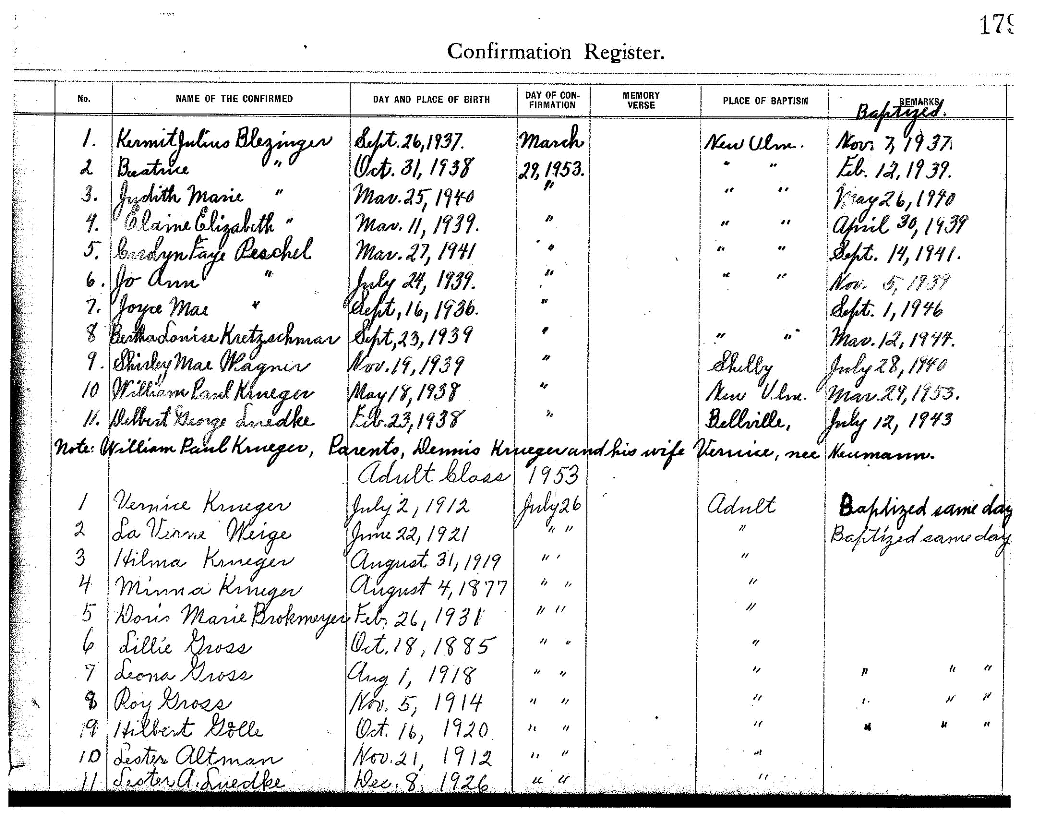 179
Confirmation Register.
No. NAME OF THE CONFIRMED DAY AND PLACE OF BIRTH DAY OF CONFIRMATION MEMORY VERSE PLACE OF BAPTISM REMARKS
Baptized.
1. Kermit Julius Blezinger Sept. 26, 1937. March New Ulm. Nov. 7, 1937.
2 Beatrice " Oct. 31, 1938 29, 1953. " " Feb. 12, 1939.
3. Judith Marie " Mar. 25, 1940 " " " May 26, 1940
4. Elaine Elizabeth " Mar. 11, 1939. " " " April 30, 1939
5. Carolyn Faye Peschel Mar. 27, 1941 " " " Sept. 14, 1941.
6. Jo Ann " July 24, 1939. " " " Nov. 5, 1939
7. Joyce Mae " Sept. 16, 1936. " Sept. 1, 1946
8 Bertha Louise Kretzschmar Sept. 23, 1939 " " " Mar. 12, 1944.
9. Shirley Mae Wagner Nov. 19, 1939 " Shelby July 28, 1940
10 William Paul Krueger May 18, 1938 " New Ulm. Mar. 29, 1953.
11. Delbert George Luedke Feb. 23, 1938 " Bellville, July 12, 1943
Note: William Paul Krueger, Parents, Dennis Krueger and his wife Vernice, nee Neumann.
Adult Class 1953
1 Vernice Krueger July 2, 1912 July 26 Adult Baptized same day
2 La Verne Weige June 22, 1921 " " " Baptized same day
3 Hilma Krueger August 31, 1919 " " "
4 Minna Krueger August 4, 1877 " " "
5 Doris Marie Brokmeyer Feb. 26, 1931 " " "
6 Lillie Gross Oct. 18, 1885 " " "
7 Leona Gross Aug 1, 1918 " " " " " "
8 Roy Gross Nov. 5, 1914 " " " " " "
9 Hilbert Golle Oct. 16, 1920 " " " " " "
10 Lester Altman Nov. 21, 1912 " " "
11 Lester A. Luedke Dec. 8, 1926 " " "